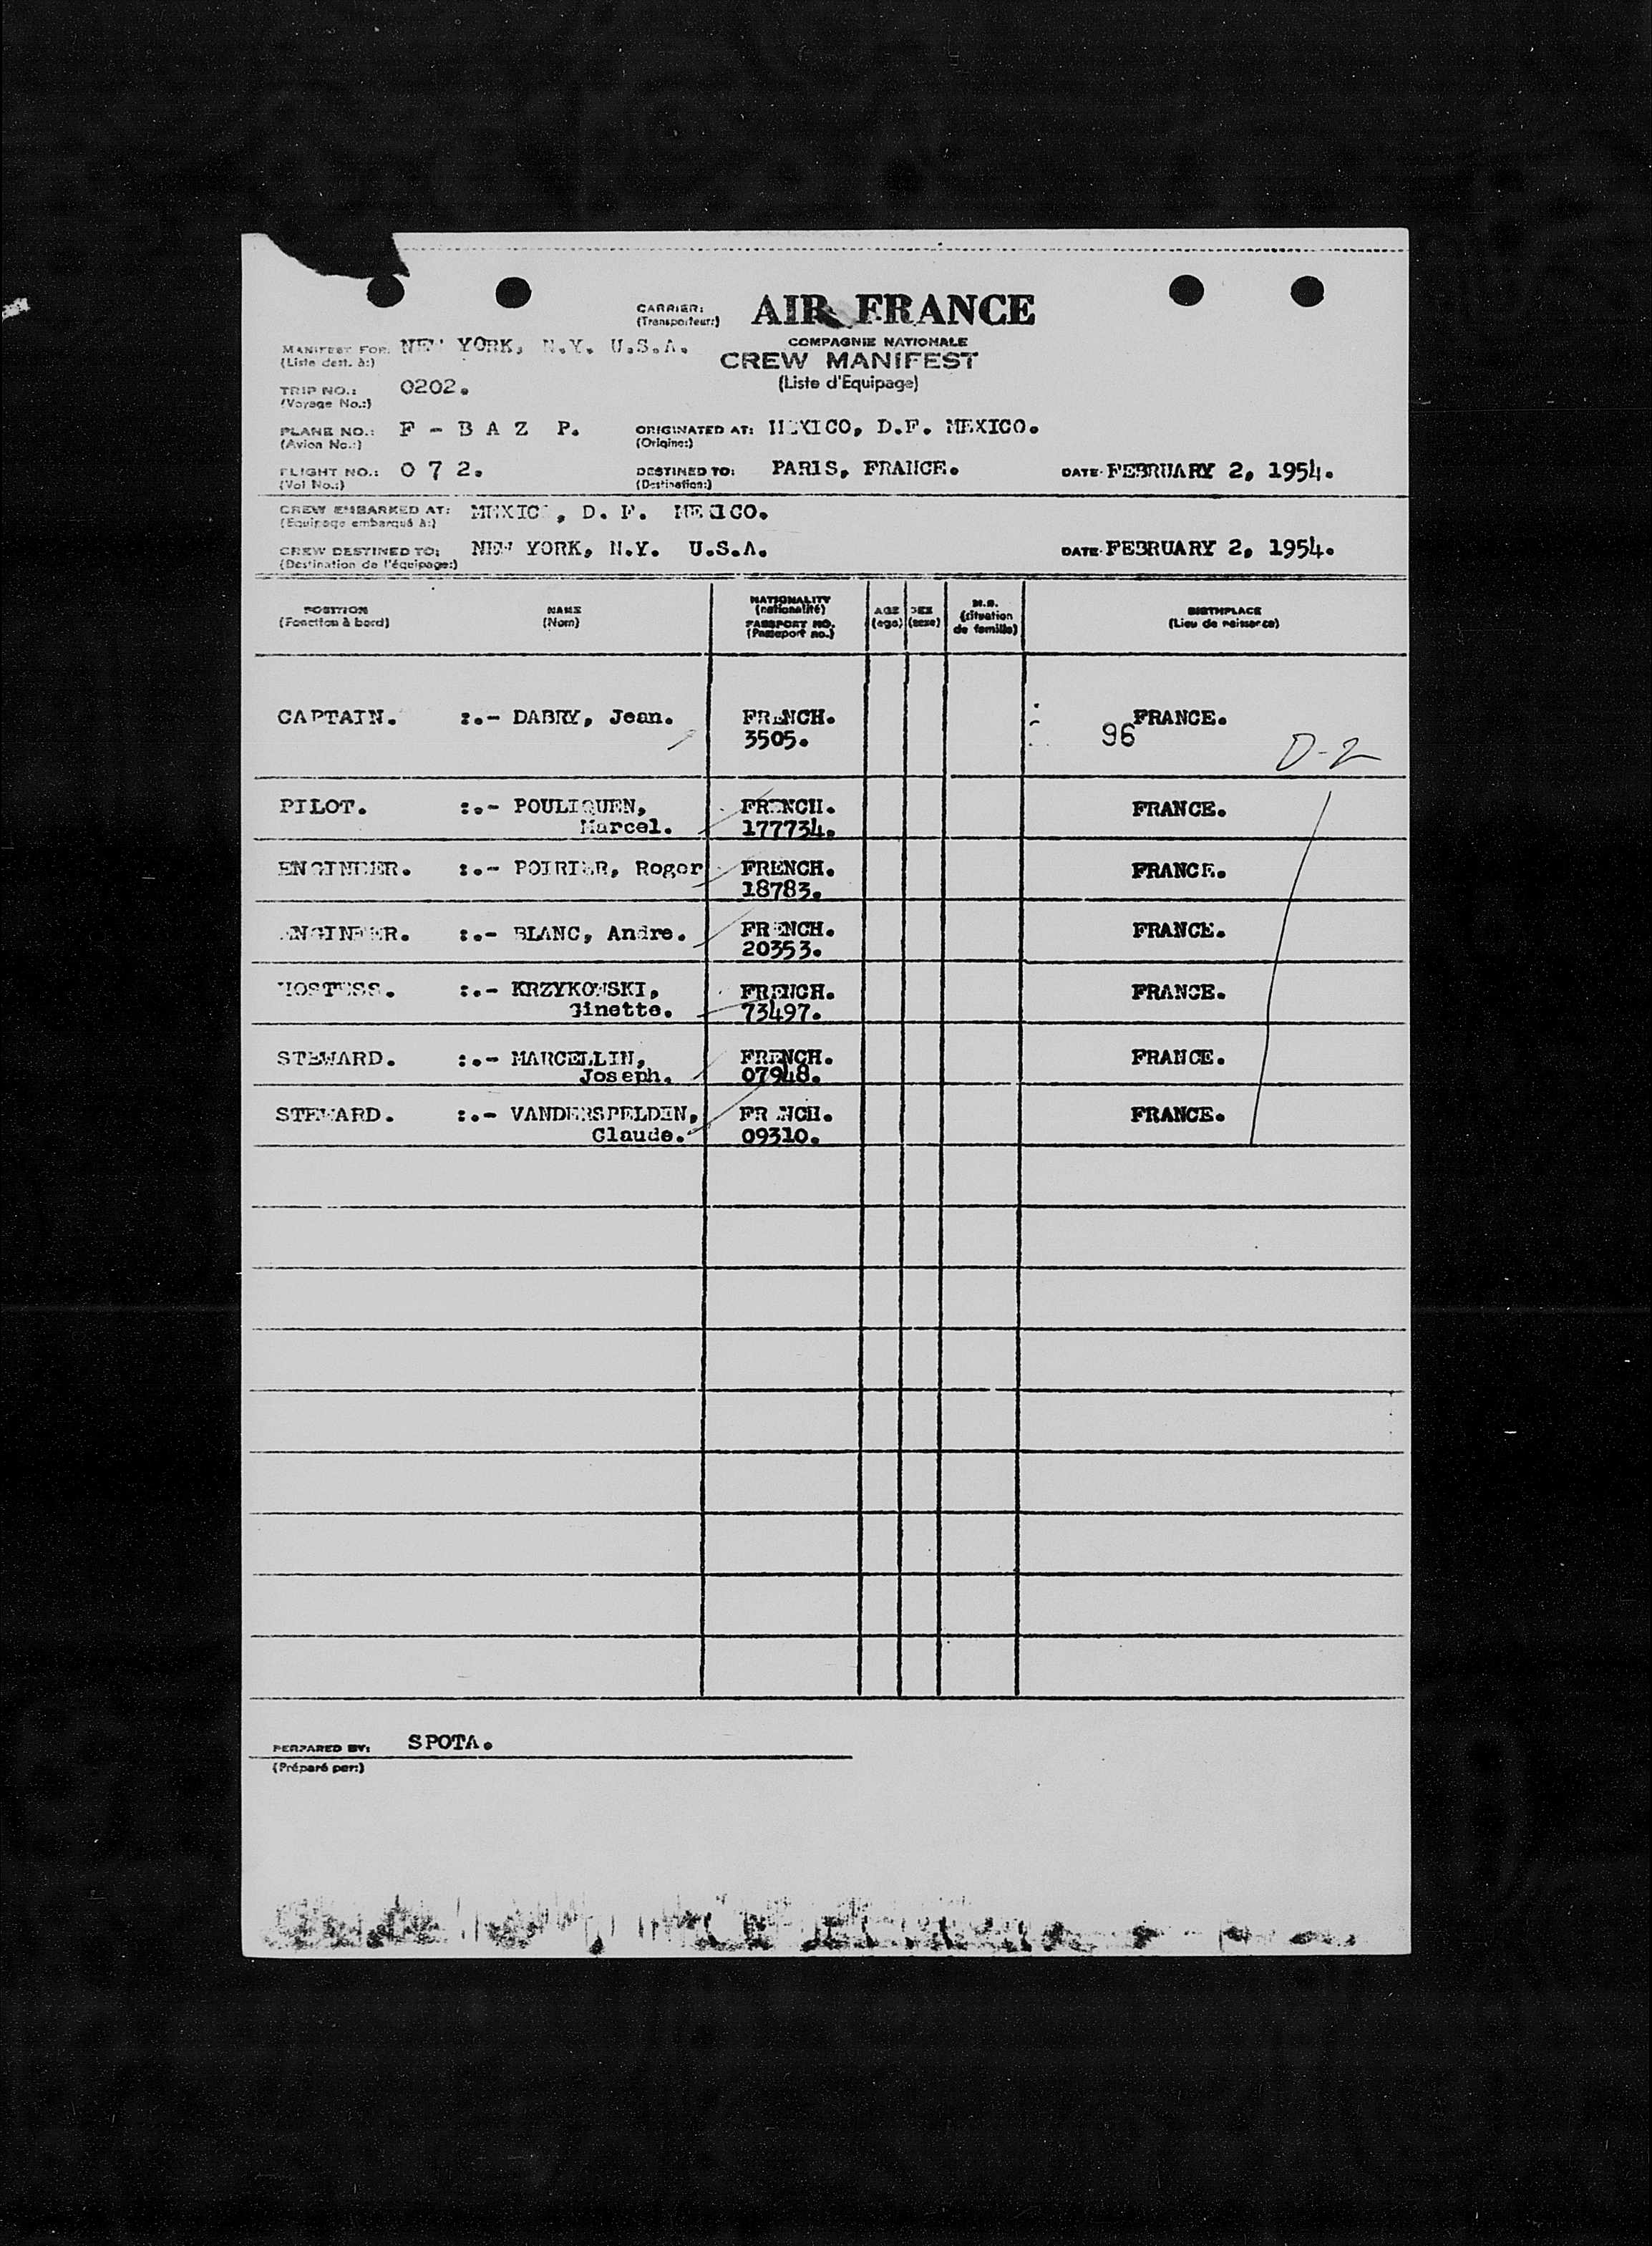 CARRIER: AIR FRANCE
(Transporteur:)
COMPAGNIE NATIONALE
MANIFEST FOR: NEW YORK, N.Y. U.S.A.
(Liste dest. à:)
CREW MANIFEST
(Liste d'Equipage)
TRIP NO.: 0202.
(Voyage No.:)
PLANE NO.: F - B A Z P. ORIGINATED AT: MEXICO, D.F. MEXICO.
(Avion No.:) (Origine:)
FLIGHT NO.: 0 7 2. DESTINED TO: PARIS, FRANCE. DATE: FEBRUARY 2, 1954.
(Vol No.:) (Destination:)
CREW EMBARKED AT: MEXICO, D. F. MEXICO.
(Equipage embarqué à:)
CREW DESTINED TO: NEW YORK, N.Y. U.S.A. DATE: FEBRUARY 2, 1954.
(Destination de l'équipage:)
POSITION NAME NATIONALITY AGE SEX M.S. BIRTHPLACE
(Fonction à bord) (Nom) (nationalité) (age) (sexe) (situation de famille) (Lieu de naissance)
PASSPORT NO.
(Passeport no.)
CAPTAIN. :.- DABRY, Jean. FRENCH. FRANCE.
3505. 96
D-2
PILOT. :.- POULIQUEN, FRENCH. FRANCE.
Marcel. 177734.
ENGINEER. :.- POIRIER, Roger FRENCH. FRANCE.
18783.
ENGINEER. :.- BLANC, Andre. FRENCH. FRANCE.
20353.
HOSTESS. :.- KRZYKOWSKI, FRENCH. FRANCE.
Ginette. 73497.
STEWARD. :.- MARCELLIN, FRENCH. FRANCE.
Joseph. 07948.
STEWARD. :.- VANDERSPELDEN, FRENCH. FRANCE.
Claude. 09310.
PERPARED BY: SPOTA.
(Préparé par:)